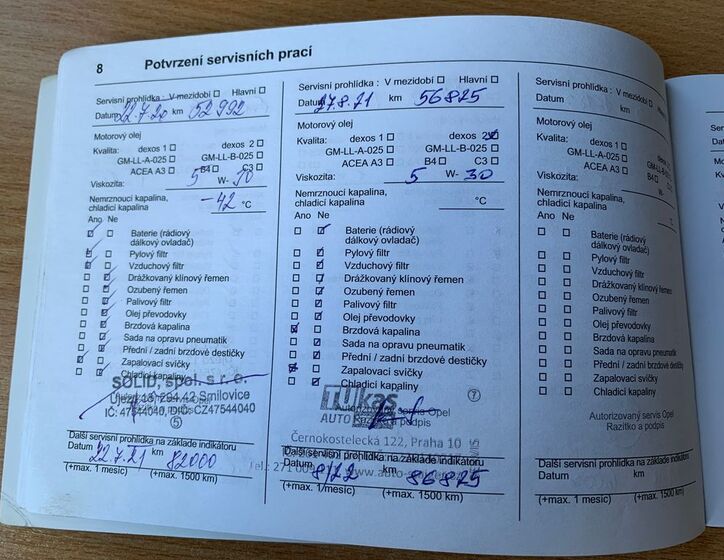 8 Potvrzení servisních prací
Servisní prohlídka : V mezidobí ☐ Hlavní ☐
Datum 22.7.20 km 52992
Motorový olej
Kvalita: dexos 1 ☐ dexos 2 ☐
GM-LL-A-025 ☐ GM-LL-B-025 ☐
ACEA A3 ☐ B4 ☐ C3 ☐
Viskozita: 5 W-
Nemrznoucí kapalina,
chladicí kapalina -42 °C
Ano Ne
Baterie (rádiový
dálkový ovladač)
Pylový filtr
Vzduchový filtr
Drážkovaný klínový řemen
Ozubený řemen
Palivový filtr
Olej převodovky
Brzdová kapalina
Sada na opravu pneumatik
Přední / zadní brzdové destičky
Zapalovací svíčky
Chladicí kapaliny
SOLID, spol. s r. o.
Újezd 18, 294 42 Smilovice
IČ: 47544040, DIČ: CZ47544040
(5)
Další servisní prohlídka na základě indikátoru
Datum 22.7.21 km 82000
(+max. 1 měsíc) (+max. 1500 km)
Servisní prohlídka : V mezidobí ☐ Hlavní ☐
Datum 27.8.21 km 56825
Motorový olej
Kvalita: dexos 1 ☐ dexos 2 ☑
GM-LL-A-025 ☐ GM-LL-B-025 ☐
ACEA A3 ☐ B4 ☐ C3 ☐
Viskozita: 5 W- 30
Nemrznoucí kapalina,
chladicí kapalina °C
Ano Ne
Baterie (rádiový
dálkový ovladač)
Pylový filtr
Vzduchový filtr
Drážkovaný klínový řemen
Ozubený řemen
Palivový filtr
Olej převodovky
Brzdová kapalina
Sada na opravu pneumatik
Přední / zadní brzdové destičky
Zapalovací svíčky
Chladicí kapaliny
TUkas
AUTO
Autorizovaný servis Opel
Razítko a podpis
(7)
Černokostelecká 122, Praha 10
Další servisní prohlídka na základě indikátoru
Datum 8/22 km 86825
(+max. 1 měsíc) (+max. 1500 km)
Servisní prohlídka : V mezidobí ☐ Hlavní ☐
Datum km
Motorový olej
Kvalita: dexos 1 ☐
GM-LL-A-025 ☐ GM-LL-B-025 ☐
ACEA A3 ☐ B4 ☐
Viskozita: W-
Nemrznoucí kapalina,
chladicí kapalina
Ano Ne
Baterie (rádiový
dálkový ovladač)
Pylový filtr
Vzduchový filtr
Drážkovaný klínový řemen
Ozubený řemen
Palivový filtr
Olej převodovky
Brzdová kapalina
Sada na opravu pneumatik
Přední / zadní brzdové destičky
Zapalovací svíčky
Chladicí kapaliny
Autorizovaný servis Opel
Razítko a podpis
Další servisní prohlídka na základě indikátoru
Datum km
(+max. 1 měsíc) (+max. 1500 km)